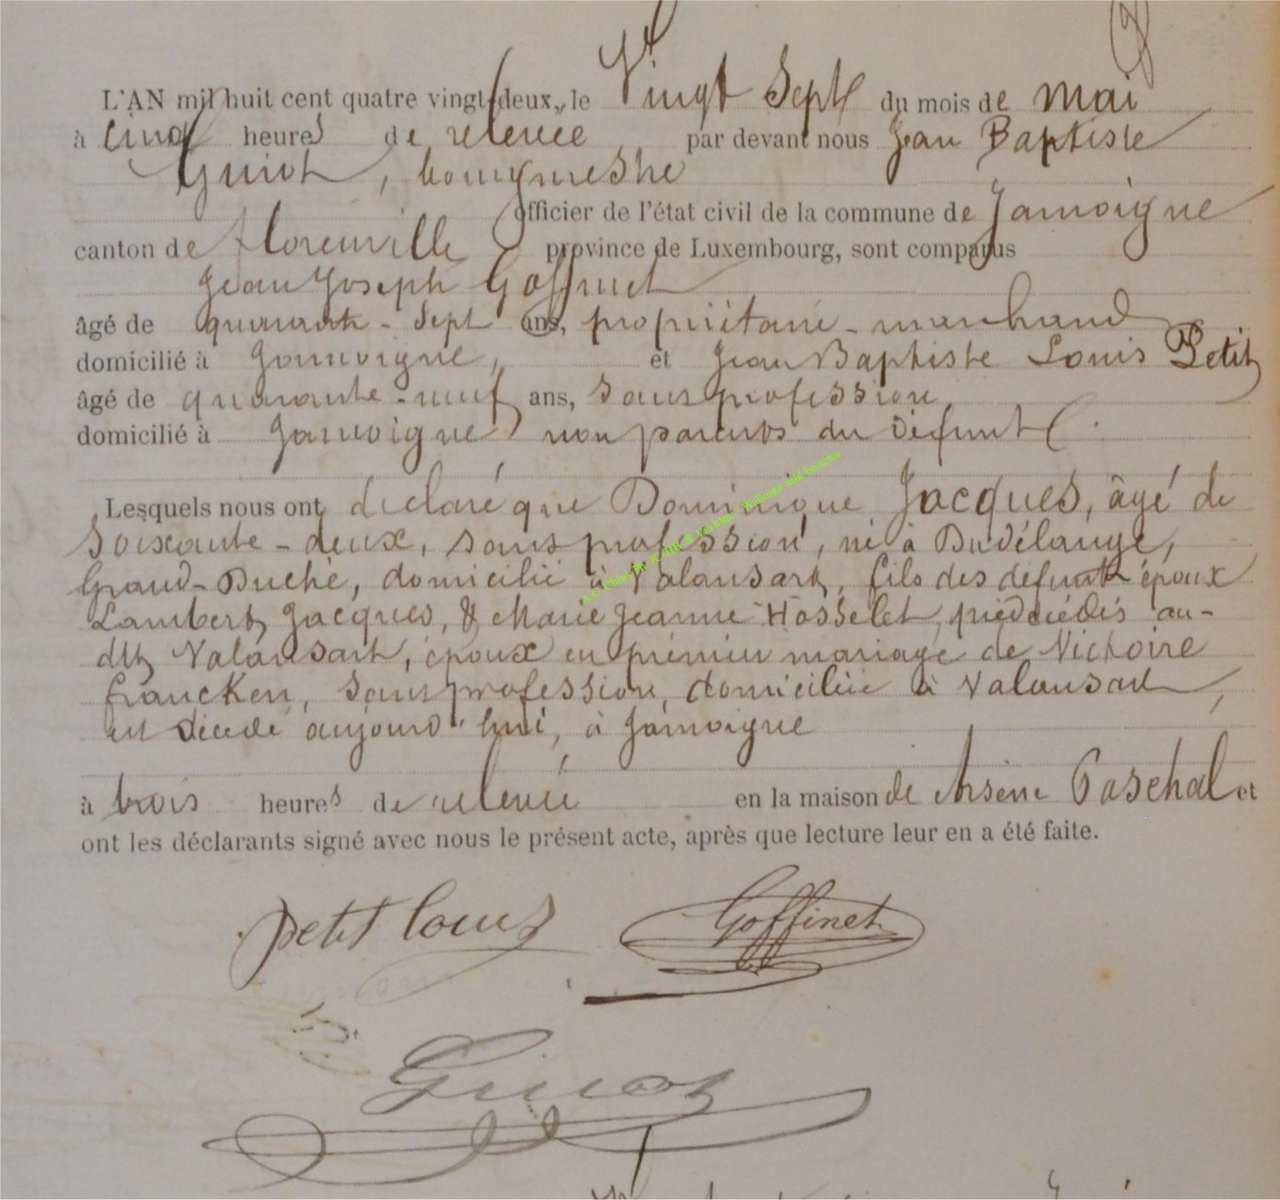 L'AN mil huit cent quatre vingt-deux, le Vingt Sept du mois de mai
à cinq heures de relevée par devant nous Jean Baptiste
Guiot, bourgmestre
officier de l'état civil de la commune de Jamoigne
canton de florenville province de Luxembourg, sont comparus
Jean Joseph Goffinet
âgé de quarante-sept ans, propriétaire-marchand
domicilié à Jamoigne, et Jean Baptiste Louis Petit
âgé de quarante-neuf ans, sans profession,
domicilié à Jamoigne non parents du défunt.
Lesquels nous ont déclaré que Dominique Jacques, âgé de
soixante-deux, sans profession, né à Dudélange,
Grand-Duché, domicilié à Valansart, fils des défunts époux
Lambert Jacques, & Marie Jeanne Hosselet, prédécédés au-
dit Valansart, époux en prémier mariage de Victoire
francken, sans profession, domiciliée à Valansart,
est décédé aujourd'hui, à Jamoigne
à trois heures de relevée en la maison de Arsène Paschal et
ont les déclarants signé avec nous le présent acte, après que lecture leur en a été faite.
Petit Louis Goffinet
Guiot